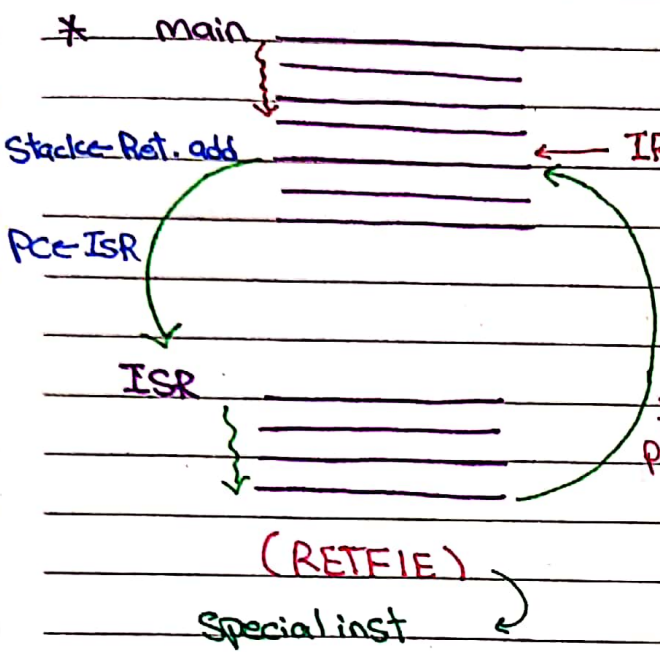 * main
Stack←Ret. add
PC←ISR
ISR
(RETFIE)
special inst